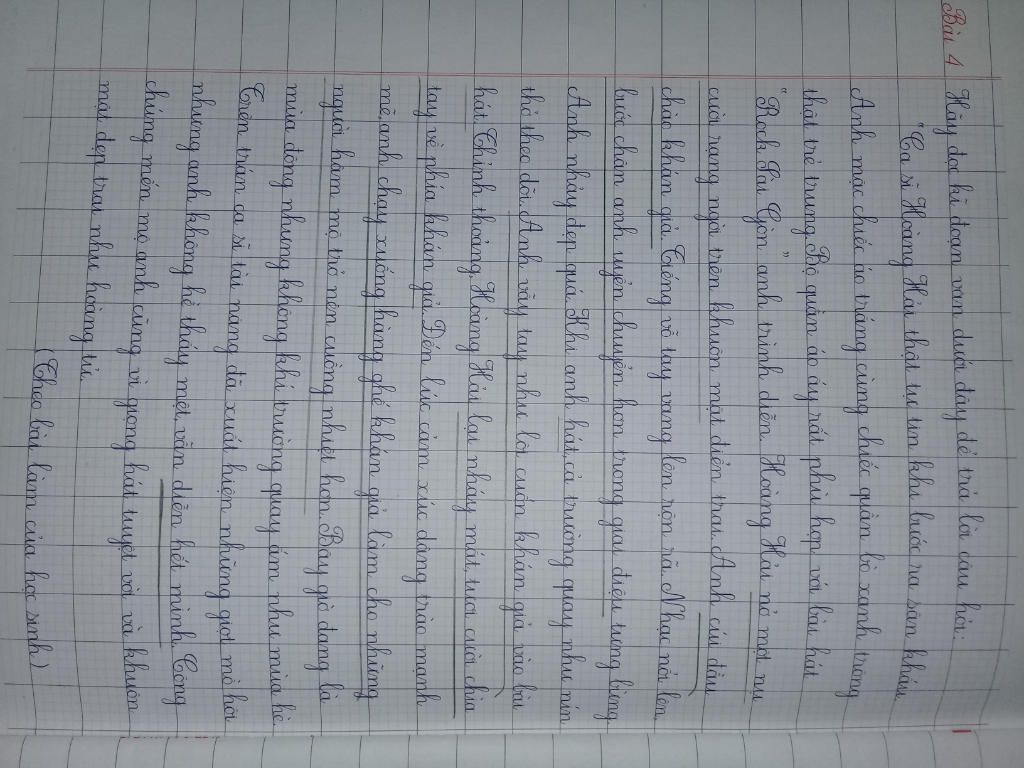 Bài 4
Hãy đọc kĩ đoạn văn dưới đây để trả lời câu hỏi:
"Ca sĩ Hoàng Hải thật tự tin khi bước ra sân khấu.
Anh mặc chiếc áo trắng cùng chiếc quần bò xanh trông
thật trẻ trung. Bộ quần áo ấy rất phù hợp với bài hát
"Rock Sài Gòn" anh trình diễn. Hoàng Hải nở một nụ
cười rạng ngời trên khuôn mặt điển trai. Anh cúi đầu
chào khán giả. Tiếng vỗ tay vang lên rộn rã. Nhạc nổi lên,
bước chân anh uyển chuyển hơn trong giai điệu tưng bừng.
Anh nhảy đẹp quá. Khi anh hát, cả trường quay như nín
thở theo dõi. Anh vẫy tay như lôi cuốn khán giả vào bài
hát. Thỉnh thoảng, Hoàng Hải lại nháy mắt, tươi cười chìa
tay về phía khán giả. Đến lúc cảm xúc dâng trào mạnh
mẽ, anh chạy xuống hàng ghế khán giả làm cho những
người hâm mộ trở nên cuồng nhiệt hơn. Bây giờ đang là
mùa đông nhưng không khí trường quay ấm như mùa hè.
Trên trán ca sĩ tài năng đã xuất hiện những giọt mồ hôi
nhưng anh không hề thấy mệt, vẫn diễn hết mình. Công
chúng mến mộ anh cũng vì giọng hát tuyệt vời và khuôn
mặt đẹp trai như hoàng tử.
(Theo bài làm của học sinh)